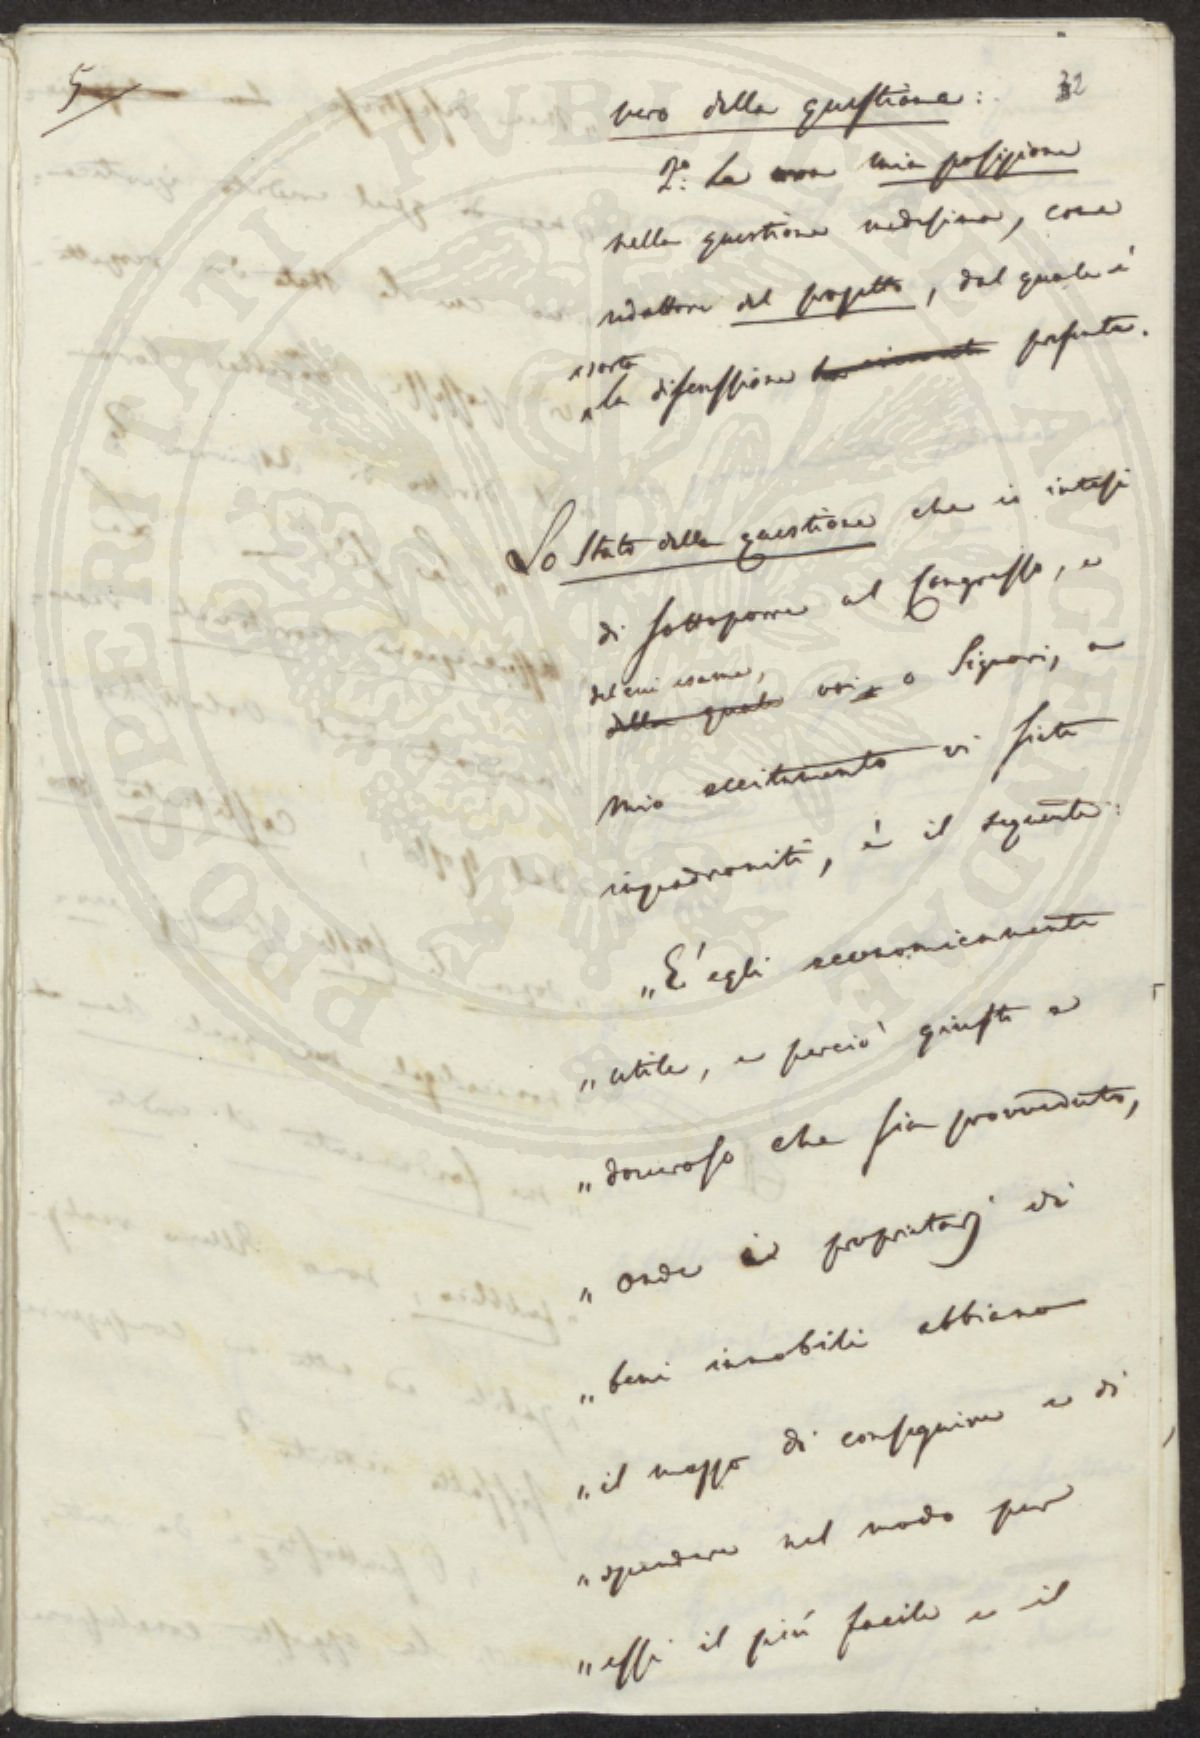 5
32
vero della questione:
2.ª La mia posizione
nella questione medesima, come
redattore del progetto, dal quale è
sorta
la discussione presente.
Lo Stato della questione che io intesi
di sottoporre al Congresso, e
del cui esame,
della quale voi, o Signori, a
mio eccitamento vi siete
impadroniti, è il seguente:
„E' egli economicamente
„utile, e perciò giusto e
„doveroso che sia provveduto,
„onde i proprietarj di
„beni immobili abbiano
„il mezzo di conseguire e di
„spendere nel modo per
„essi il più facile e il
PROSPERITATI PUBLICAE AUGENDAE